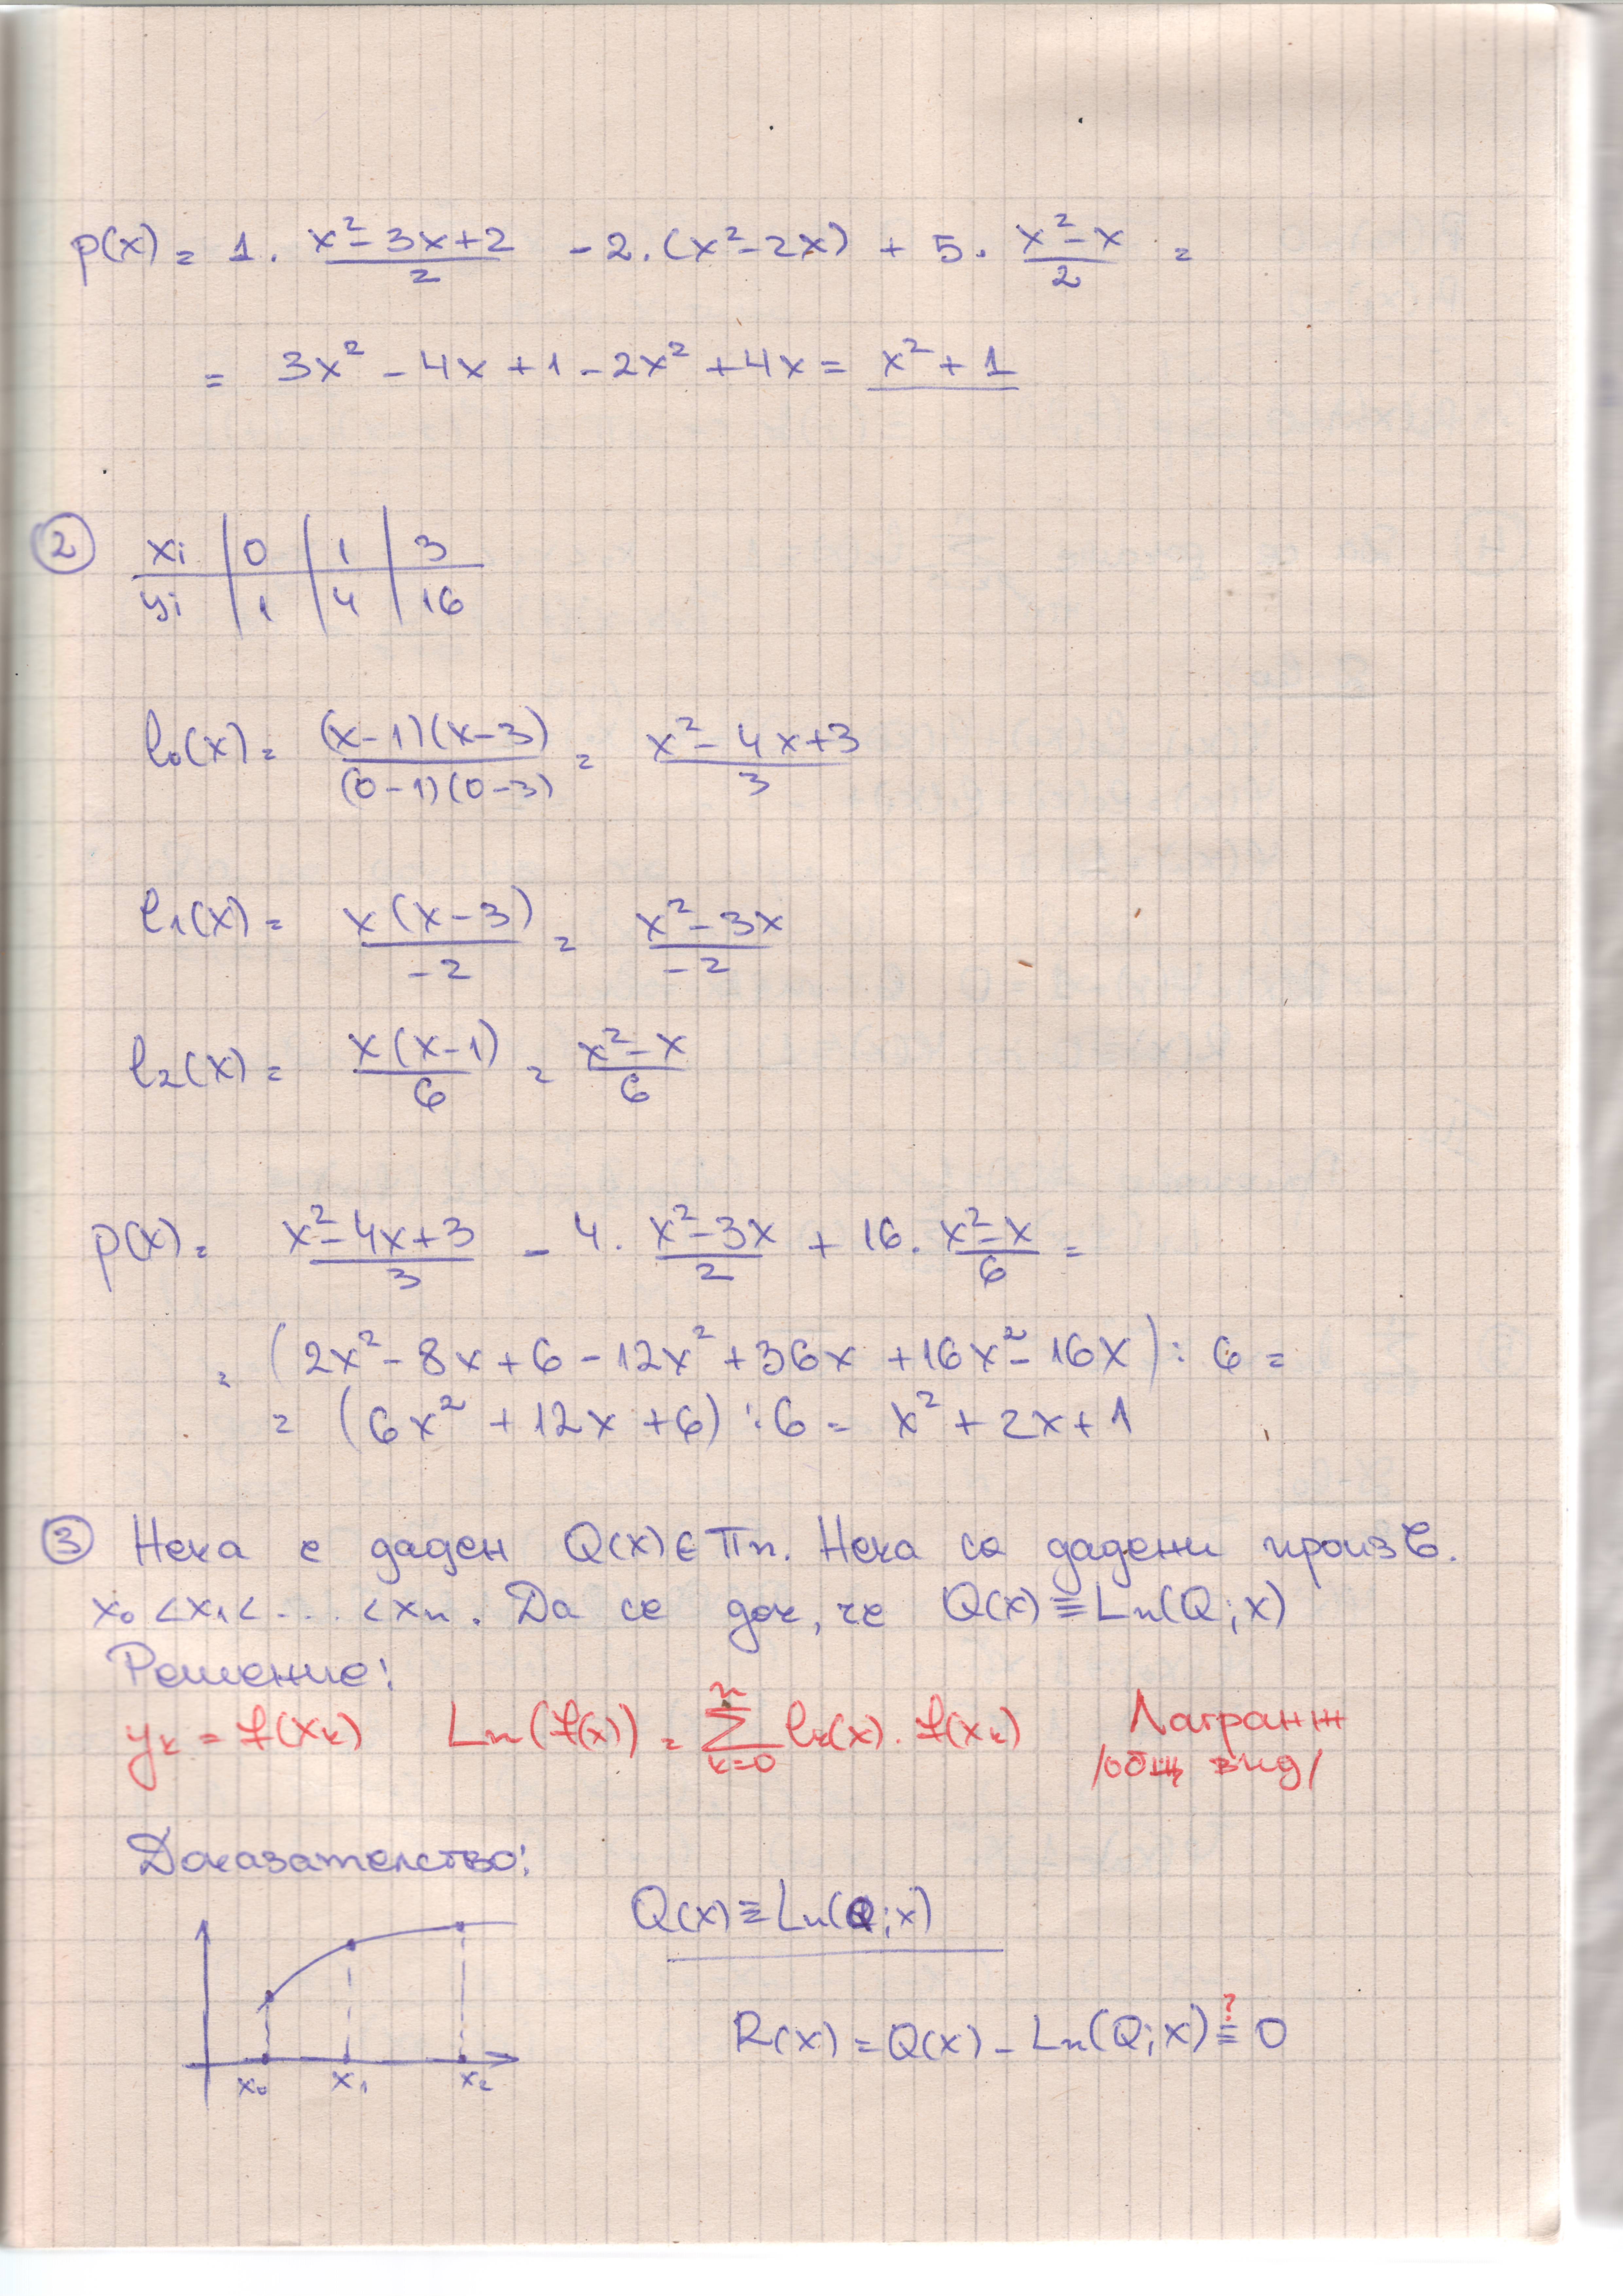 p(x) = 1 . (x² - 3x + 2)/2 - 2.(x² - 2x) + 5 . (x² - x)/2 =
= 3x² - 4x + 1 - 2x² + 4x = x² + 1
② xi | 0 | 1 | 3
yi | 1 | 4 | 16
l₀(x) = (x-1)(x-3)/(0-1)(0-3) = (x² - 4x + 3)/3
l₁(x) = x(x-3)/-2 = (x² - 3x)/-2
l₂(x) = x(x-1)/6 = (x² - x)/6
p(x) = (x² - 4x + 3)/3 - 4 . (x² - 3x)/2 + 16 . (x² - x)/6 =
= (2x² - 8x + 6 - 12x² + 36x + 16x² - 16x) : 6 =
= (6x² + 12x + 6) : 6 = x² + 2x + 1
③ Нека е даден Q(x) ∈ Πn. Нека са дадени произв.
x₀ < x₁ < .... < xn. Да се док, че Q(x) ≡ Ln(Q; x)
Решение:
yk = f(xk) Ln(f(x)) = Σ k=0 n lk(x) . f(xk) Лагранж
/общ вид/
Доказателство:
Q(x) ≡ Ln(Q; x)
R(x) = Q(x) - Ln(Q; x) ≡? 0
x₀ x₁ x₂